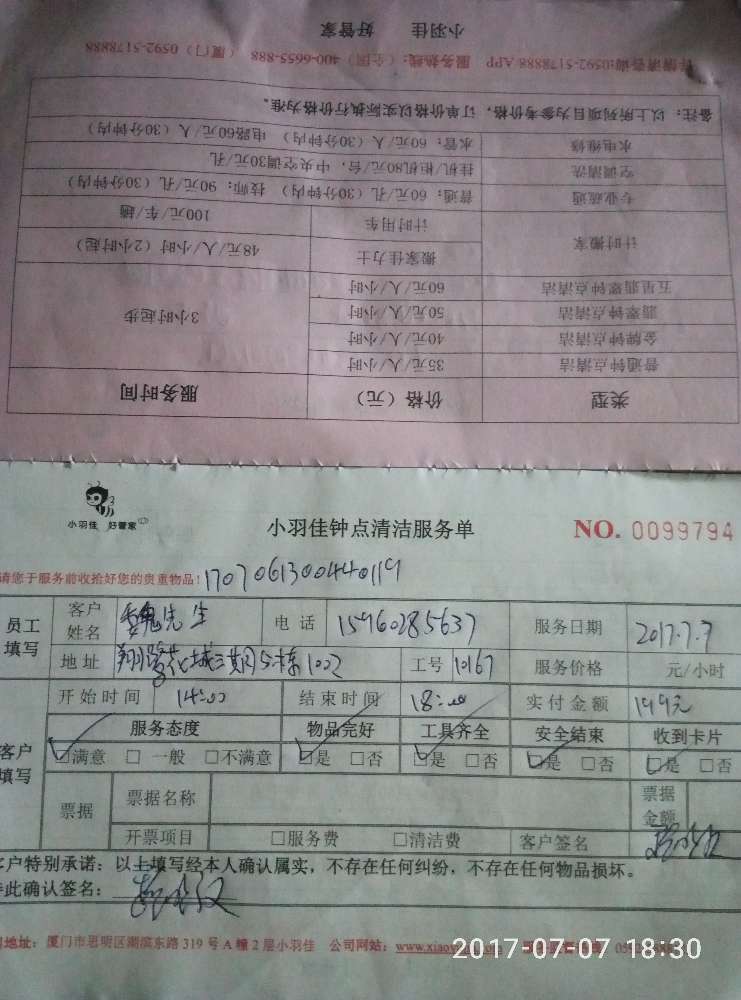 小羽佳 好管家
详情请咨询:0592-5178888 APP 服务热线：（全国）400-6655-888 （厦门）0592-5178888
备注：以上所列项目为参考价格，订单价格以实际执行价格为准。
类型 价格（元） 服务时间
普通钟点清洁 35元/人/小时 3小时起步
金牌钟点清洁 40元/人/小时
翡翠钟点清洁 50元/人/小时
五星翡翠钟点清洁 60元/人/小时
计时搬家 搬家佳力士 48元/人/小时（2小时起）
计时用车 100元/车/趟
专业疏通 普通：60元/孔（30分钟内） 技师：90元/孔（30分钟内）
空调清洗 挂机/柜机80元/台，中央空调30元/孔
水电维修 水管：60元/人（30分钟内） 电路60元/人（30分钟内）
小羽佳 好管家
小羽佳钟点清洁服务单 NO. 0099794
请您于服务前收拾好您的贵重物品! 1707061300440119
员工填写 客户姓名 魏先生 电话 15960285637 服务日期 2017.7.7
地址 翔鹭花城三期5栋1002 工号 10167 服务价格 元/小时
开始时间 14:00 结束时间 18:00 实付金额 199元
客户填写 服务态度 物品完好 工具齐全 安全结束 收到卡片
满意 一般 不满意 是 否 是 否 是 否 是 否
票据 票据名称 票据金额
开票项目 服务费 清洁费 客户签名
客户特别承诺：以上填写经本人确认属实，不存在任何纠纷，不存在任何物品损坏。
特此确认签名：
地址：厦门市思明区湖滨东路319号A幢2层小羽佳 公司网站：www.xiaoy
2017-07-07 18:30